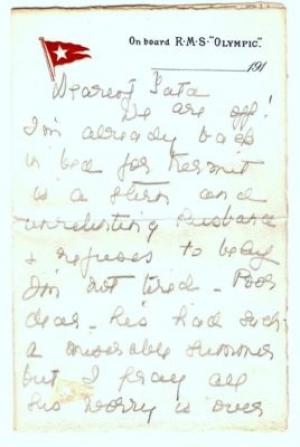 On board R·M·S· "OLYMPIC".
191
Dearest Tata
We are off!
I'm already back
in bed for Kermit
is a stern and
unrelenting husband
& refuses to believe
I'm not tired – Poor
dear – he's had such
a miserable summer
but I pray all
his worry is over